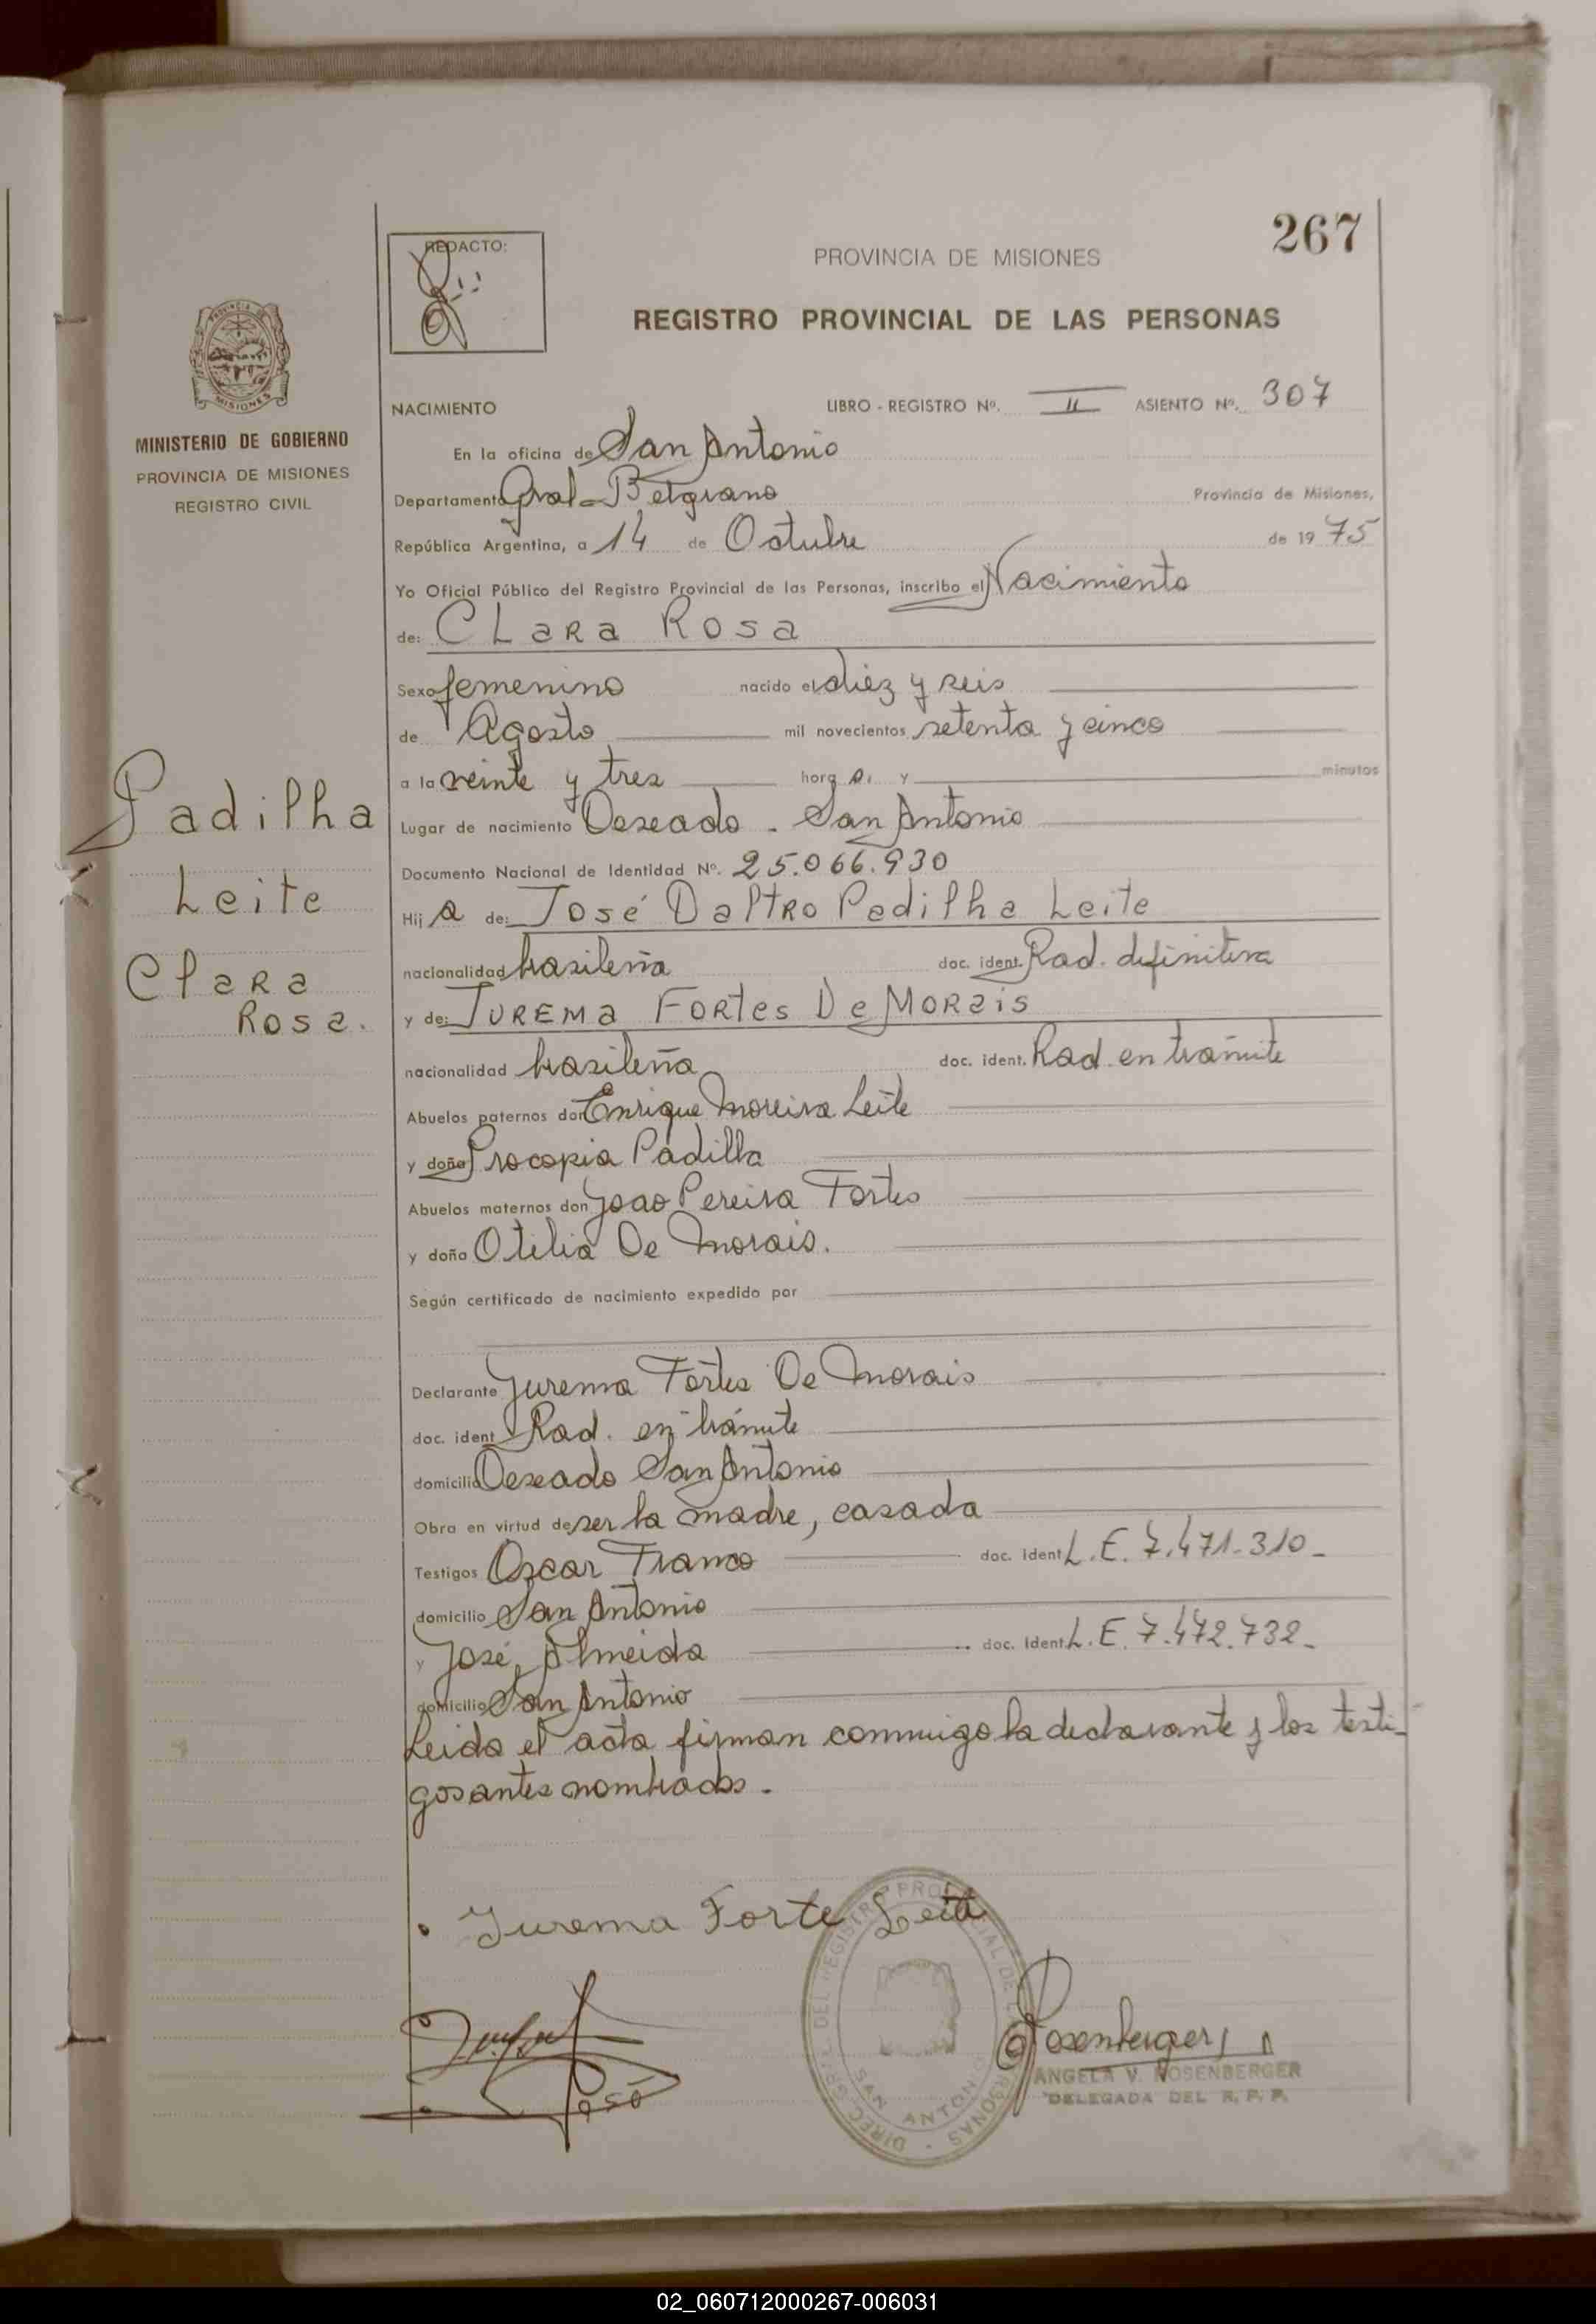 267
REDACTO:
PROVINCIA DE MISIONES
REGISTRO PROVINCIAL DE LAS PERSONAS
PROVINCIA DE
MISIONES
MINISTERIO DE GOBIERNO
PROVINCIA DE MISIONES
REGISTRO CIVIL
Padilha
Leite
Clara
Rosa.
NACIMIENTO LIBRO - REGISTRO Nº. II ASIENTO Nº. 307
En la oficina de San Antonio
Departamento Gral. Belgrano Provincia de Misiones,
República Argentina, a 14 de Octubre de 19 75
Yo Oficial Público del Registro Provincial de las Personas, inscribo el Nacimiento
de: CLARA ROSA
Sexo femenino nacido el diez y seis
de Agosto mil novecientos setenta y cinco
a la veinte y tres hora s. y minutos
Lugar de nacimiento Deseado - San Antonio
Documento Nacional de Identidad Nº. 25.066.930
Hij a de: José Daltro Padilha Leite
nacionalidad brasileña doc. ident. Rad. definitiva
y de: JUREMA FORTES De MORAIS
nacionalidad brasileña doc. ident. Rad. en trámite
Abuelos paternos don Enrique Moreira Leite
y doña Procopia Padilla
Abuelos maternos don Joao Pereira Fortes
y doña Otilia De Morais.
Según certificado de nacimiento expedido por
Declarante Jurema Fortes De Morais
doc. ident Rad. en trámite
domicilio Deseado San Antonio
Obra en virtud de ser la madre, casada
Testigos Oscar Franco doc. ident L.E. 7.471.310-
domicilio San Antonio
y José Almeida doc. ident L.E. 7.472.732-
domicilio San Antonio
Leida el acta firman conmigo la declarante y los testi-
gos antes nombrados.
Jurema Forte Leite
DIREC. GRAL. DEL REGISTRO PROVINCIAL DE LAS PERSONAS
SAN ANTONIO
Rosenberger
ANGELA V. ROSENBERGER
DELEGADA DEL R. P. P.
02_060712000267-006031